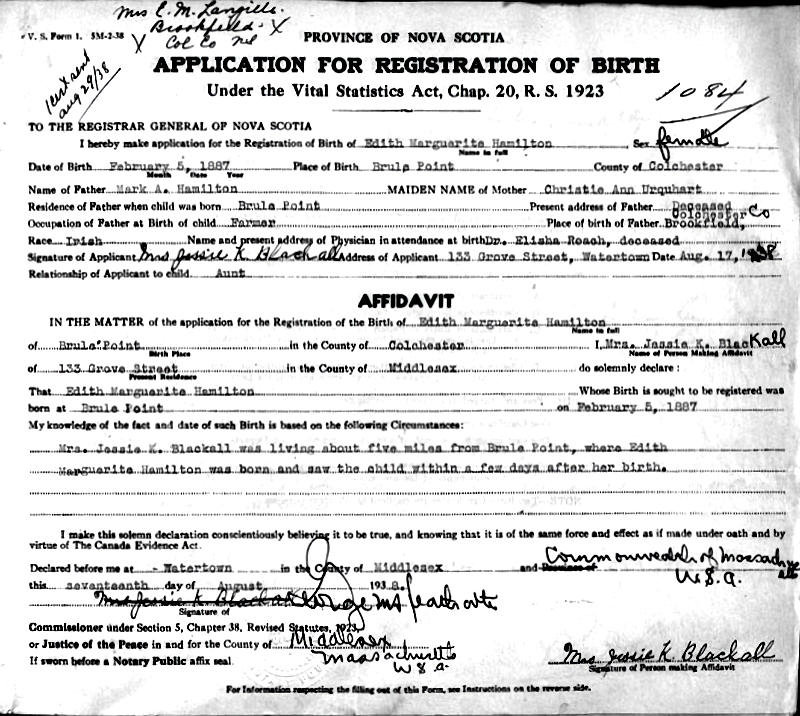 Mrs E. M. Langille
Brookfield X
V. S. Form 1. 5M-2-38 X Col Co N.S.
PROVINCE OF NOVA SCOTIA
1 cert sent
Aug 29/38
APPLICATION FOR REGISTRATION OF BIRTH
Under the Vital Statistics Act, Chap. 20, R. S. 1923
1084
TO THE REGISTRAR GENERAL OF NOVA SCOTIA
I hereby make application for the Registration of Birth of Edith Marguerite Hamilton Sex female
Name in full
Date of Birth February 5, 1887 Place of Birth Brule Point County of Colchester
Month Date Year
Name of Father Mark A. Hamilton MAIDEN NAME of Mother Christie Ann Urquhart
Residence of Father when child was born Brule Point Present address of Father Deceased
Colchester Co
Occupation of Father at Birth of child Farmer Place of birth of Father Brookfield,
Race Irish Name and present address of Physician in attendance at birth Dr. Elisha Roach, deceased
Signature of Applicant Mrs Jessie K Blackall Address of Applicant 133 Grove Street, Watertown Date Aug. 17, 1938
Relationship of Applicant to child Aunt
AFFIDAVIT
IN THE MATTER of the application for the Registration of the Birth of Edith Marguerite Hamilton
Name in full
of Brule Point in the County of Colchester I, Mrs. Jessie K. Blackall
Birth Place Name of Person Making Affidavit
of 133 Grove Street in the County of Middlesex do solemnly declare :
Present Residence
That Edith Marguerite Hamilton Whose Birth is sought to be registered was
born at Brule Point on February 5, 1887
My knowledge of the fact and date of such Birth is based on the following Circumstances:
Mrs. Jessie K. Blackall was living about five miles from Brule Point, where Edith
Marguerite Hamilton was born and saw the child within a few days after her birth.
I make this solemn declaration conscientiously believing it to be true, and knowing that it is of the same force and effect as if made under oath and by
virtue of The Canada Evidence Act.
Commonwealth of Massachusetts
Declared before me at - Watertown in the County of Middlesex and Province of
U.S.A.
this seventeenth day of August 1938.
Mrs Jessie K Blackall George M
Signature of
Commissioner under Section 5, Chapter 38, Revised Statutes, 1923,
or Justice of the Peace in and for the County of Middlesex
Massachusetts
U.S.A.
If sworn before a Notary Public affix seal.
Mrs Jessie K Blackall
Signature of Person making Affidavit
For Information respecting the filling out of this Form, see Instructions on the reverse side.